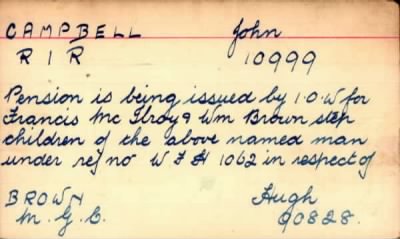 CAMPBELL John
R I R 10999
Pension is being issued by I.O.W for
Francis Mc Ilroy & Wm Brown step
children of the above named man
under ref no W F H 1062 in respect of
BROWN Hugh
M. G. C. 90828.